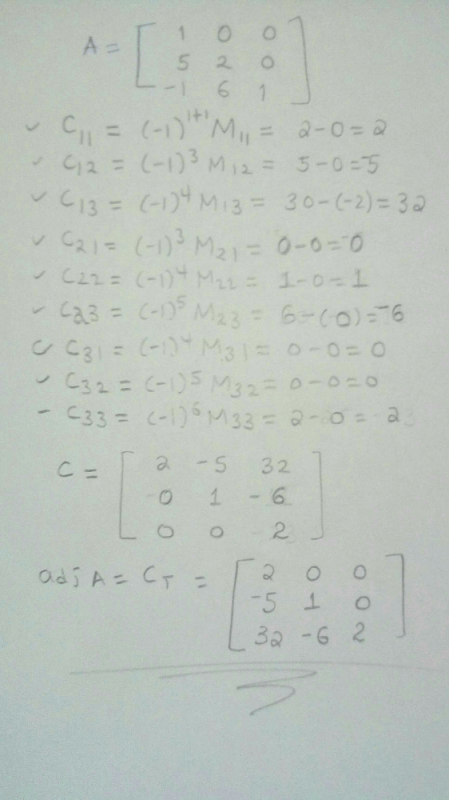 A = [ 1 0 0
5 2 0
-1 6 1 ]
✓ C11 = (-1)^1+1 M11 = 2-0=2
✓ C12 = (-1)^3 M12 = 5-0=-5
✓ C13 = (-1)^4 M13 = 30-(-2)=32
✓ C21 = (-1)^3 M21 = 0-0=-0
✓ C22 = (-1)^4 M22 = 1-0=1
✓ C23 = (-1)^5 M23 = 6-(-0)=-6
✓ C31 = (-1)^4 M31 = 0-0=0
✓ C32 = (-1)^5 M32 = 0-0=0
- C33 = (-1)^6 M33 = 2-0=2
C = [ 2 -5 32
0 1 -6
0 0 2 ]
adj A = CT = [ 2 0 0
-5 1 0
32 -6 2 ]